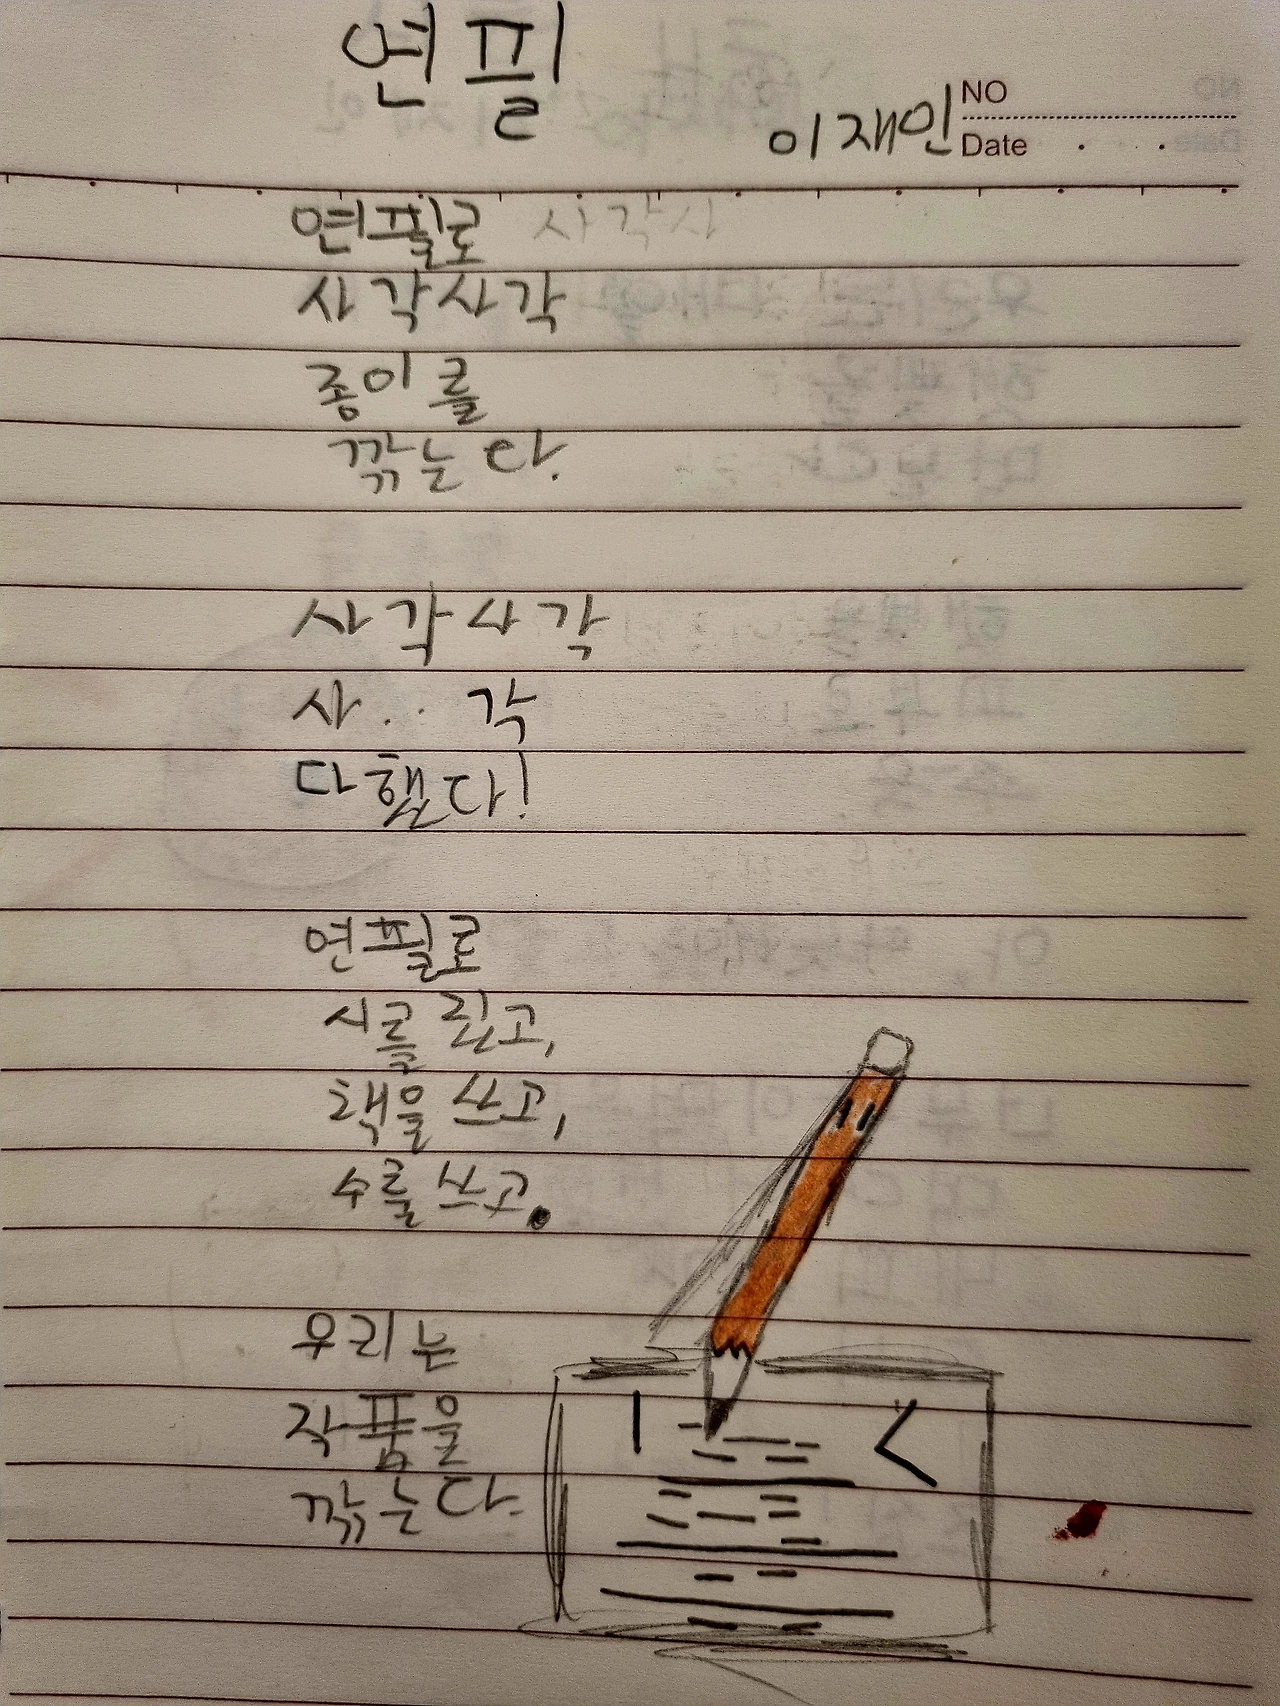 연필
이재인
NO
Date
연필로 사각사
사각사각
종이를
깎는다.
사각사각
사.. 각
다했다!
연필로
시를 쓰고,
책을 쓰고,
수를 쓰고.
우리는
작품을
깎는다.